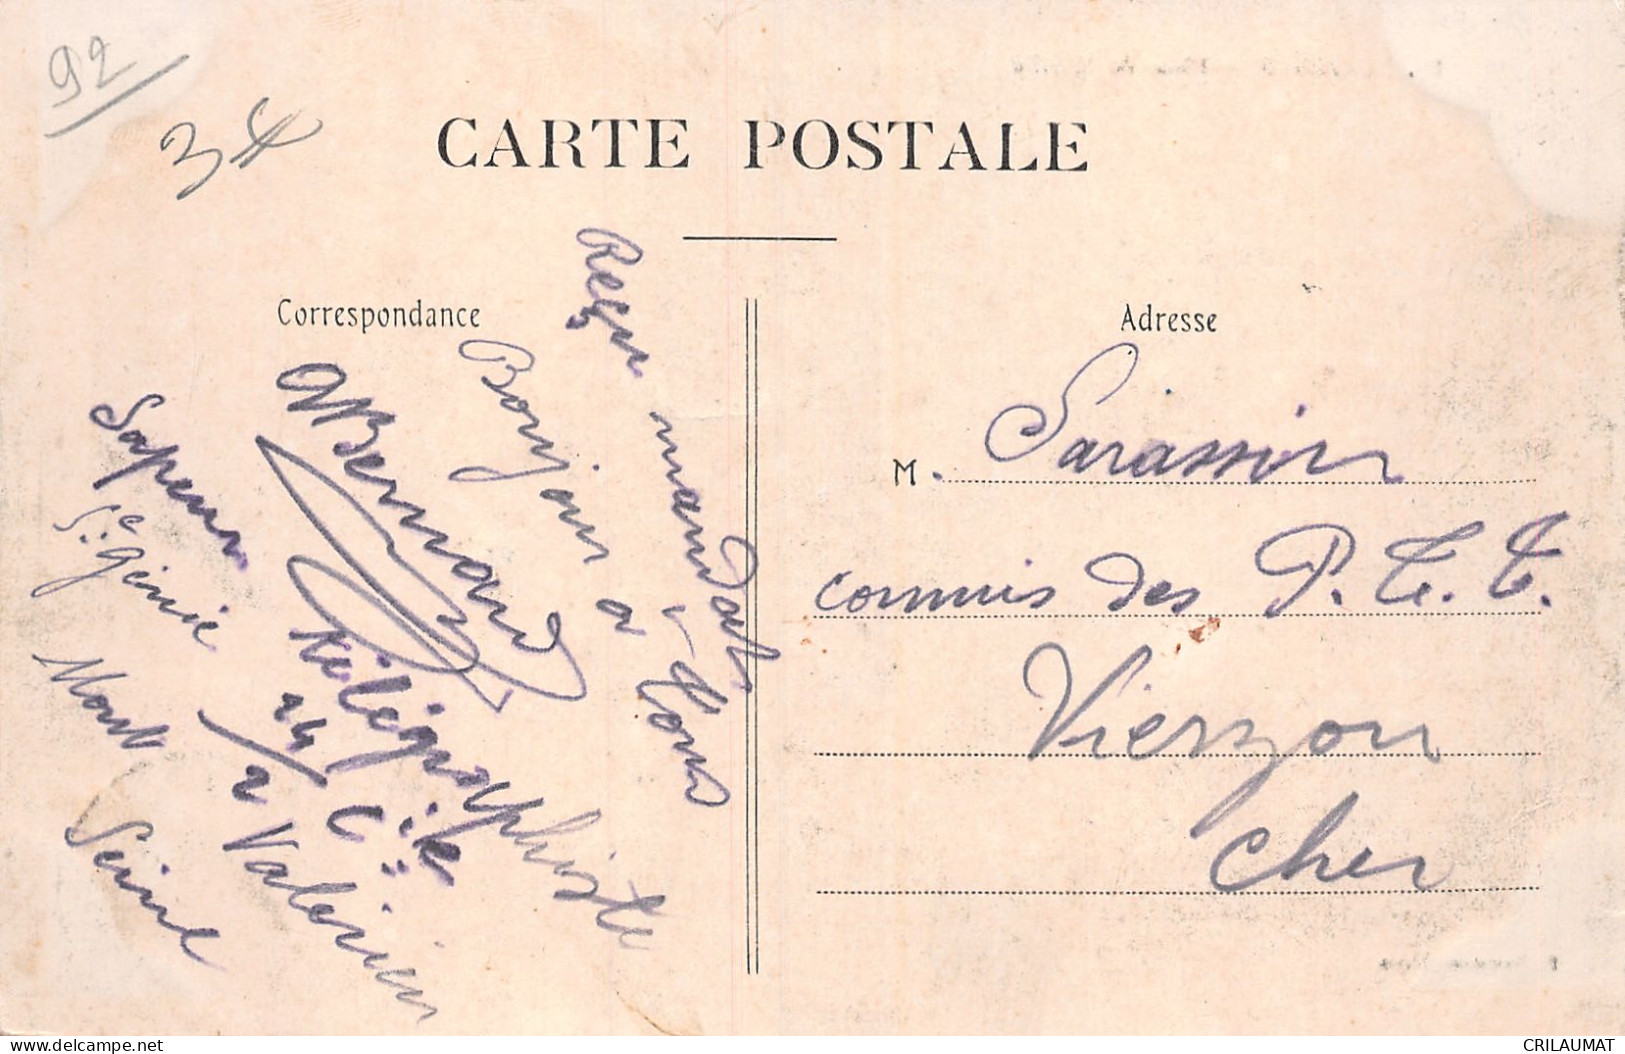 92
34
CARTE POSTALE
Correspondance
Adresse
Reçu mandat
Bonjour à Tous
Bernard
Sapeur Télégraphiste
5e Génie 24/2 Cie
Mont Valérien
Seine
M. Sarassin
commis des P.T.T.
Vierzon
Cher
delcampe.net
CRILAUMAT